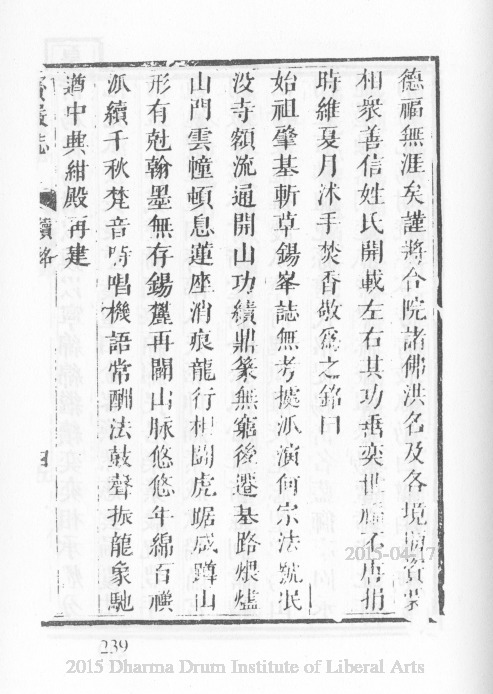 德福無涯矣謹將合院諸佛洪名及各境
相衆善信姓氏開載左右其功垂奕世
時維夏月沐手焚香敬為之銘曰
始祖肇基斬草錫峯誌無考據派演何宗法號泯
没寺額流通開山功績鼎篆無窮後遷基路煨爐
山門雲幢頓息蓮座消痕龍行相鬪虎踞咸蹲山
形有尅翰墨無存錫鑿再闢山脉悠悠年綿百禩
派續千秋梵音時唱機語常酬法鼓聲振龍象馳
遒中典紺殿再建
239
2015-04-17
2015 Dharma Drum Institute of Liberal Arts